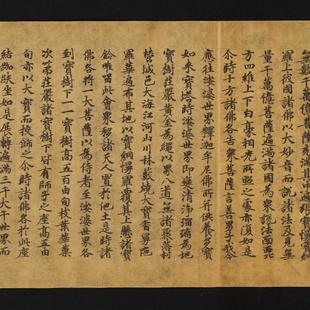 千萬億菩薩充滿其中遍張寶幔寶網
羅上彼國諸佛以大妙音而說諸法及見無
量千萬億菩薩遍滿諸國為眾說法南西北
方四維上下白毫相光所照之處亦復如是
尒時十方諸佛各告眾菩薩言善男子我今
應往娑婆世界釋迦牟尼佛所并供養多寶
如來寶塔時娑婆世界即變清淨琉璃為地
寶樹莊嚴黃金為繩以界八道無諸聚落村
營城邑大海江河山川林藪燒大寶香曼陀
羅華遍布其地以寶網幔羅覆其上懸諸寶
鈴唯留此會眾移諸天人置於他土是時諸
佛各將一大菩薩以為侍者至娑婆世界各
到寶樹下一一寶樹高五百由旬枝葉華菓
次第莊嚴諸寶樹下皆有師子之座高五由
旬亦以大寶而校飾之尒時諸佛各於此座
結加趺坐如是展轉遍滿三千大千世界而